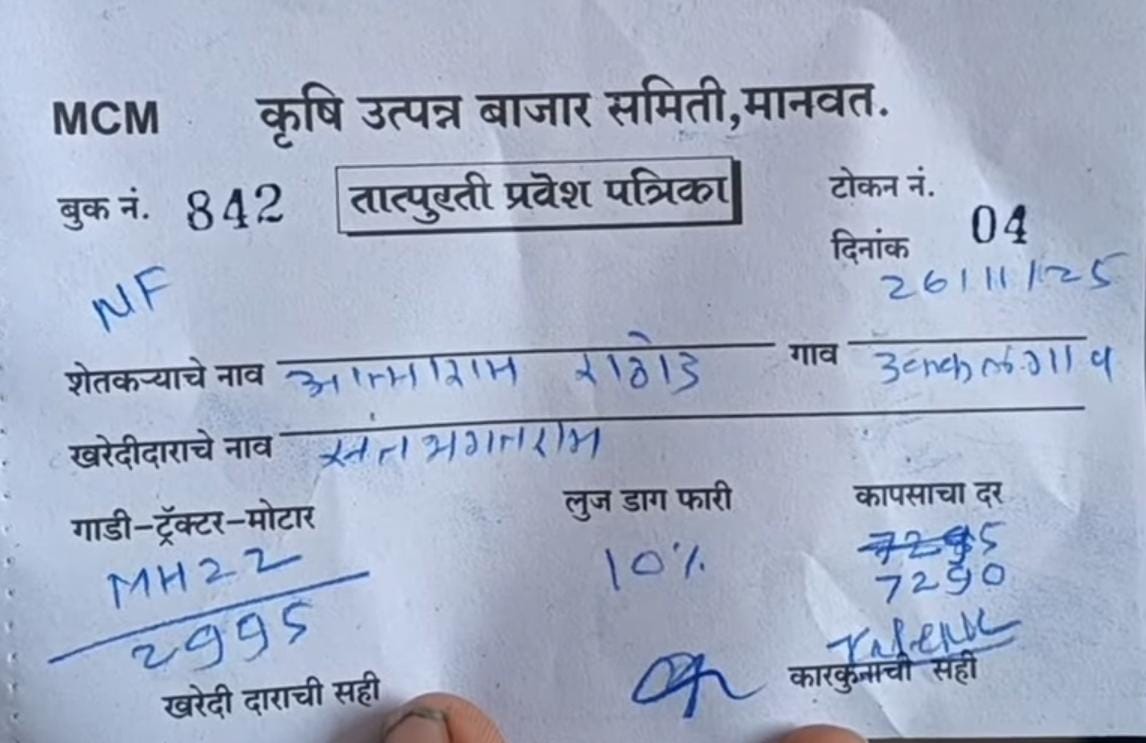 MCM कृषि उत्पन्न बाजार समिती,मानवत.
बुक नं. 842 तात्पुरती प्रवेश पत्रिका टोकन नं. 04
दिनांक 26/11/25
NF
शेतकऱ्याचे नाव आत्माराम राठोड गाव
खरेदीदाराचे नाव संत भगतराम
गाडी-ट्रॅक्टर-मोटार लुज डाग फारी कापसाचा दर
MH22 10%
2995 7290
खरेदी दाराची सही कारकुनाची सही